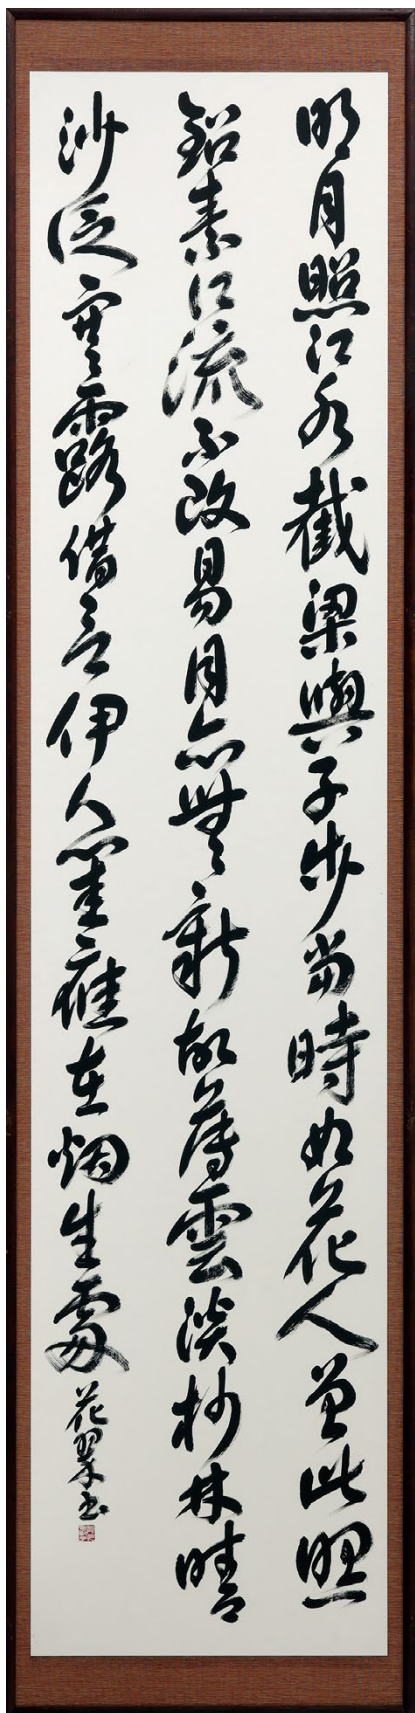 明月照江水截梁與子步當時如花人曾此照
鉛素江流不改易月亦無新故薄雲淡杪林晴
沙泛寒露借言伊人應在烟生處
花翠書